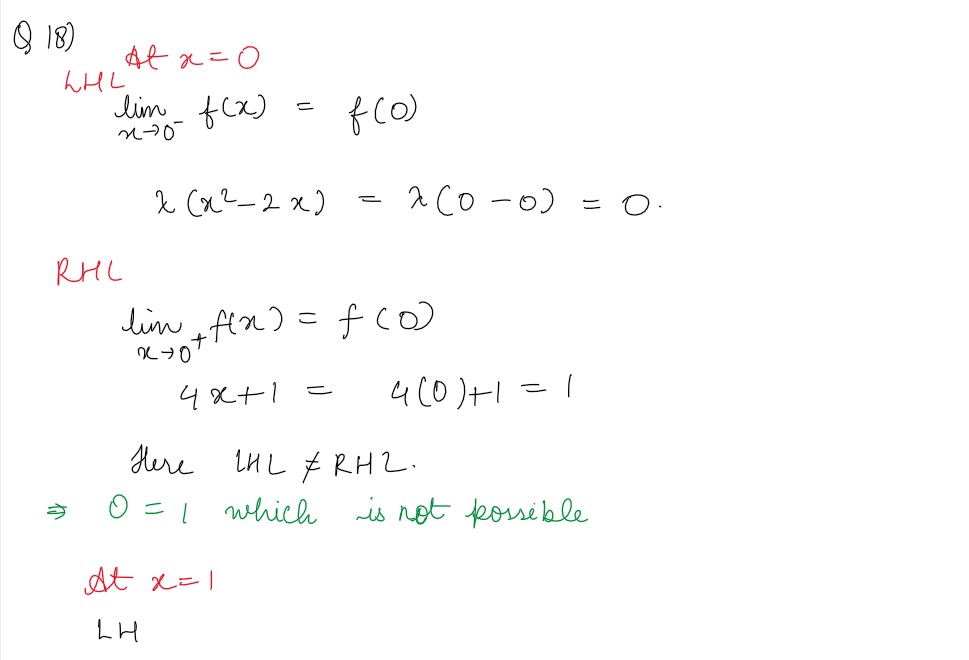 Q 18)
At x = 0
LHL
lim x→0⁻ f(x) = f(0)
λ (x² − 2x) = λ(0 − 0) = 0.
RHL
lim x→0⁺ f(x) = f(0)
4x+1 = 4(0)+1 = 1
Here LHL ≠ RHL.
⇒ 0 = 1 which is not possible
At x = 1
LH